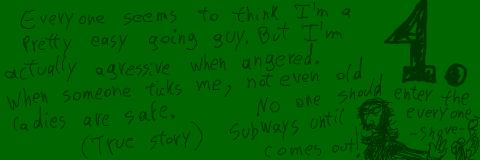 Everyone seems to think I'm a
Pretty easy going guy. But I'm
actually agressive when angered.
When someone ticks me, not even old
ladies are safe.
(True story)
1.
No one should enter the
subways until everyone
-shave-
comes out!